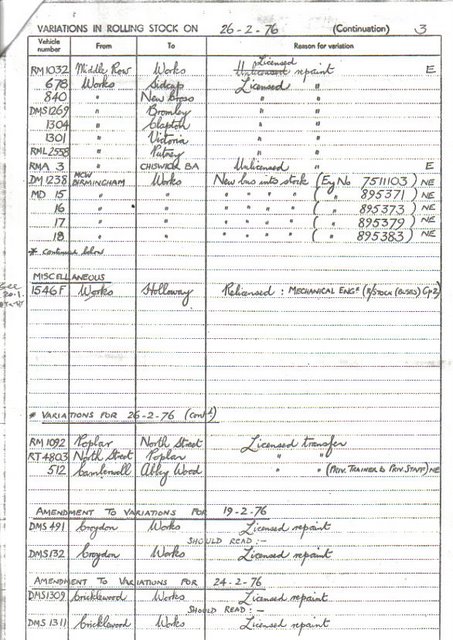 VARIATIONS IN ROLLING STOCK ON 26-2-76 (Continuation) 3
Vehicle number From To Reason for variation
RM1032 Middle Row Works Licensed Unlicensed repaint E
678 Works Sidcup Licensed "
840 " New Cross " "
DMS1269 " Bromley " "
1304 " Clapton " "
1301 " Victoria " "
RML 2558 " Putney " "
RMA 3 " CHISWICK BA Unlicensed " E
DM 1238 MCW BIRMINGHAM Works New bus into stock (Eng No 7511103) NE
MD 15 " " " " " " ( " 895371) NE
16 " " " " " " ( " 895373) NE
17 " " " " " " ( " 895379) NE
18 " " " " " " ( " 895383) NE
* Continued below
MISCELLANEOUS
See
20.1.
1546F Works Holloway Relicensed : MECHANICAL ENGR (R/STOCK (BUSES) Gp2)
* VARIATIONS FOR 26-2-76 (contd)
RM1092 Poplar North Street Licensed transfer
RT4803 North Street Poplar " "
512 Camberwell Abbey Wood " " (PRIV. TRAINER & PRIV. STAFF) NE
AMENDMENT TO VARIATIONS FOR 19-2-76
DMS491 Croydon Works Licensed repaint
SHOULD READ :-
DMS132 Croydon Works Licensed repaint
AMENDMENT TO VARIATIONS FOR 24-2-76
DMS1309 Cricklewood Works Licensed repaint
SHOULD READ :-
DMS 1311 Cricklewood Works Licensed repaint